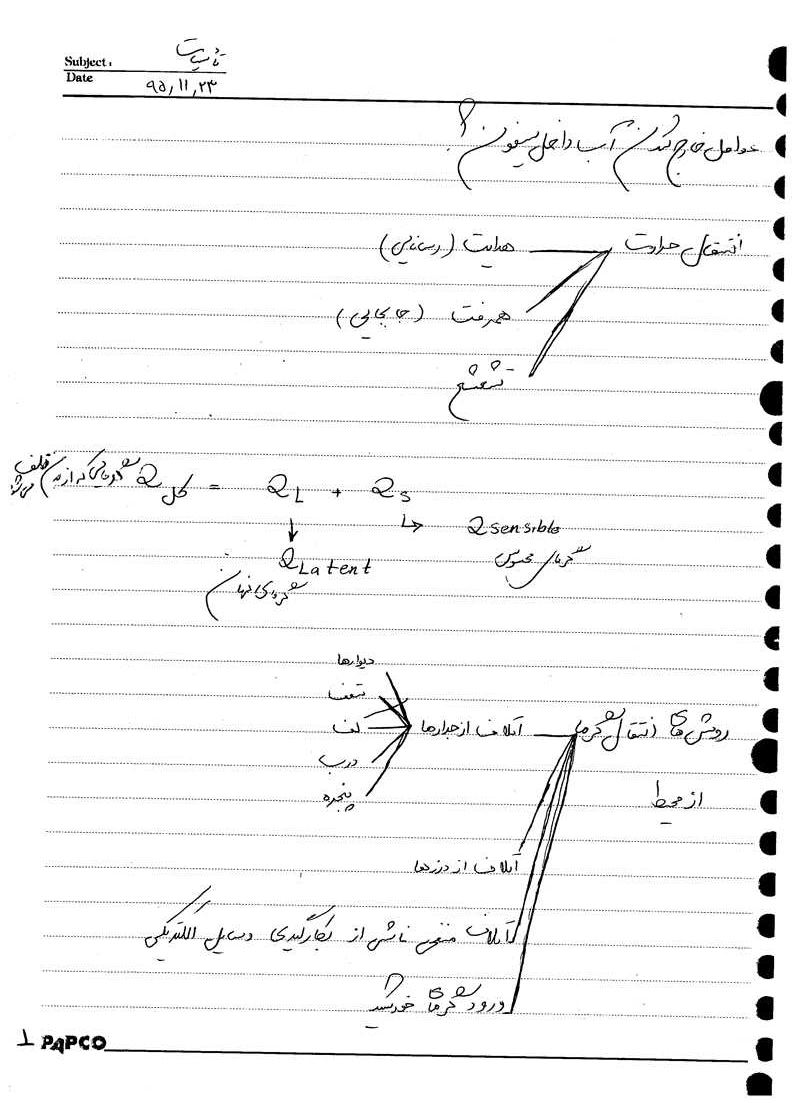 Subject: تأسیسات
Date ۹۵,۱۱,۲۳
عوامل خارج شدن آب داخل سیفون؟!
انتقال حرارت
هدایت (رسانایی)
همرفت (جابجایی)
تشعشع
گرمایی که از آن تلف می‌شود Q کل = QL + QS
Q sensible
گرمای محسوس
Q Latent
گرمای نهان
روش های انتقال گرما
از محیط
اتلاف از جدارها
دیوارها
سقف
کف
درب
پنجره
اتلاف از درزها
اتلاف منفی ناشی از بکارگیری وسایل الکتریکی
ورود گرمای خورشید
1 PAPCO